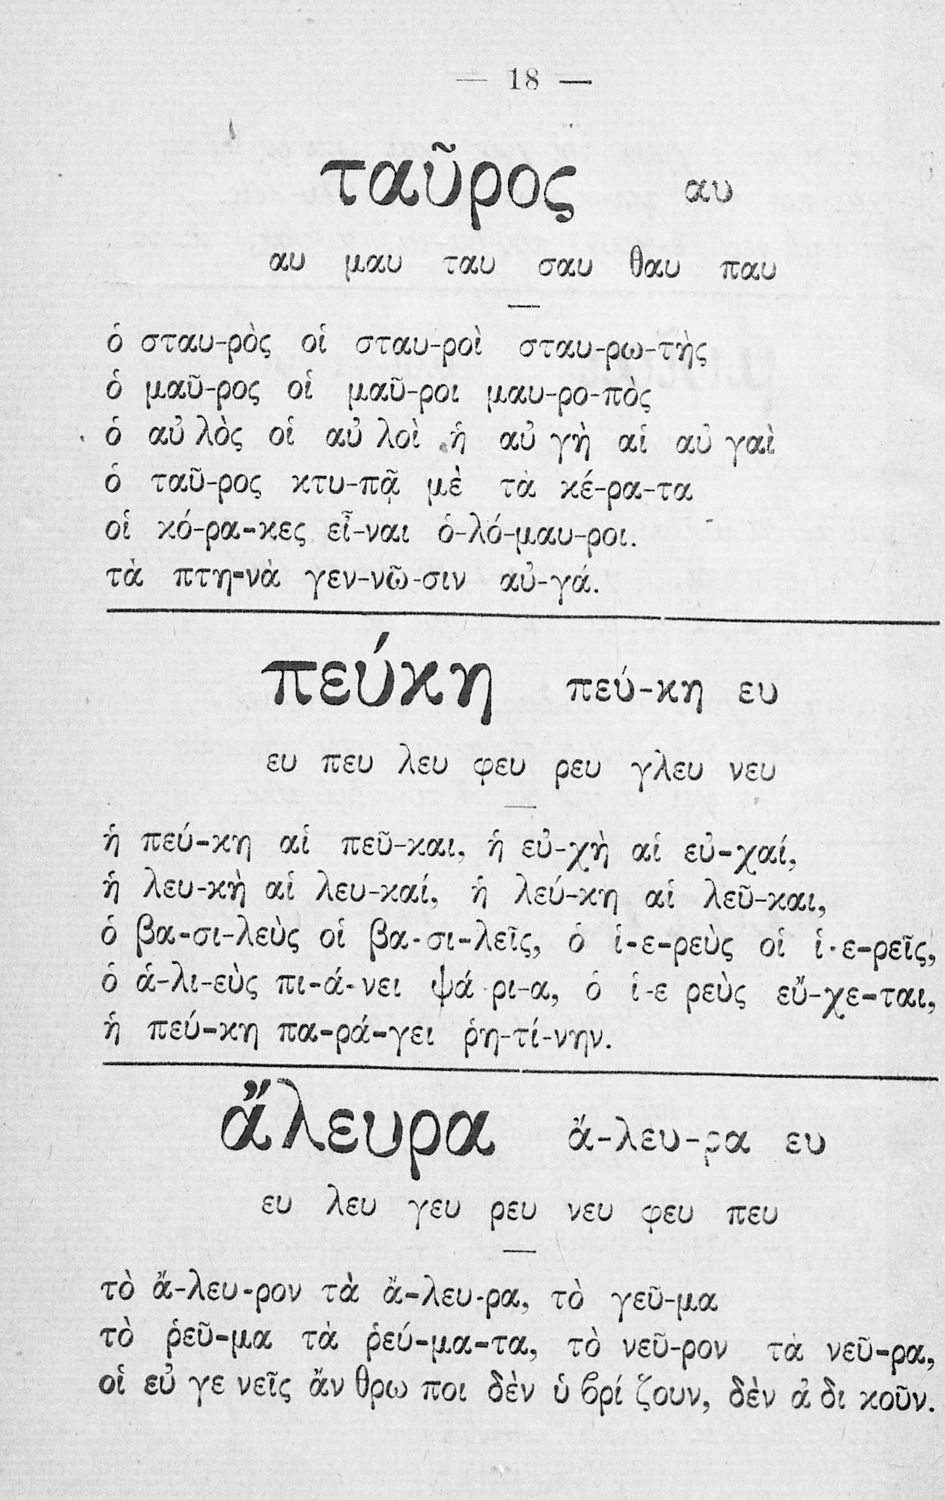 — 18 —
ταῦρος αυ
αυ μαυ ταυ σαυ θαυ παυ
ὁ σταυ-ρὸς οἱ σταυ-ροὶ σταυ-ρω-τὴς
ὁ μαῦ-ρος οἱ μαῦ-ροι μαυ-ρο-πὸς
ὁ αὐ λὸς οἱ αὐ λοὶ ἡ αὐ γὴ αἱ αὐ γαὶ
ὁ ταῦ-ρος κτυ-πᾷ μὲ τὰ κέ-ρα-τα
οἱ κό-ρα-κες εἶ-ναι ὁ-λό-μαυ-ροι.
τὰ πτη-νὰ γεν-νῶ-σιν αὐ-γά.
πεύκη πεύ-κη ευ
ευ πευ λευ φευ ρευ γλευ νευ
ἡ πεύ-κη αἱ πεῦ-και, ἡ εὐ-χὴ αἱ εὐ-χαί,
ἡ λευ-κὴ αἱ λευ-καί, ἡ λεύ-κη αἱ λεῦ-και,
ὁ βα-σι-λεὺς οἱ βα-σι-λεῖς, ὁ ἱ-ε-ρεὺς οἱ ἱ-ε-ρεῖς,
ὁ ἁ-λι-εὺς πι-ά-νει ψά ρι-α, ὁ ἱ-ε ρεὺς εὔ-χε-ται,
ἡ πεύ-κη πα-ρά-γει ῥη-τί-νην.
ἄλευρα ἄ-λευ-ρα ευ
ευ λευ γευ ρευ νευ φευ πευ
τὸ ἄ-λευ-ρον τὰ ἄ-λευ-ρα, τὸ γεῦ-μα
τὸ ῥεῦ-μα τὰ ῥεύ-μα-τα, τὸ νεῦ-ρον τὰ νεῦ-ρα,
οἱ εὐ γε νεῖς ἄν θρω ποι δὲν ὑ βρί ζουν, δὲν ἀ δι κοῦν.